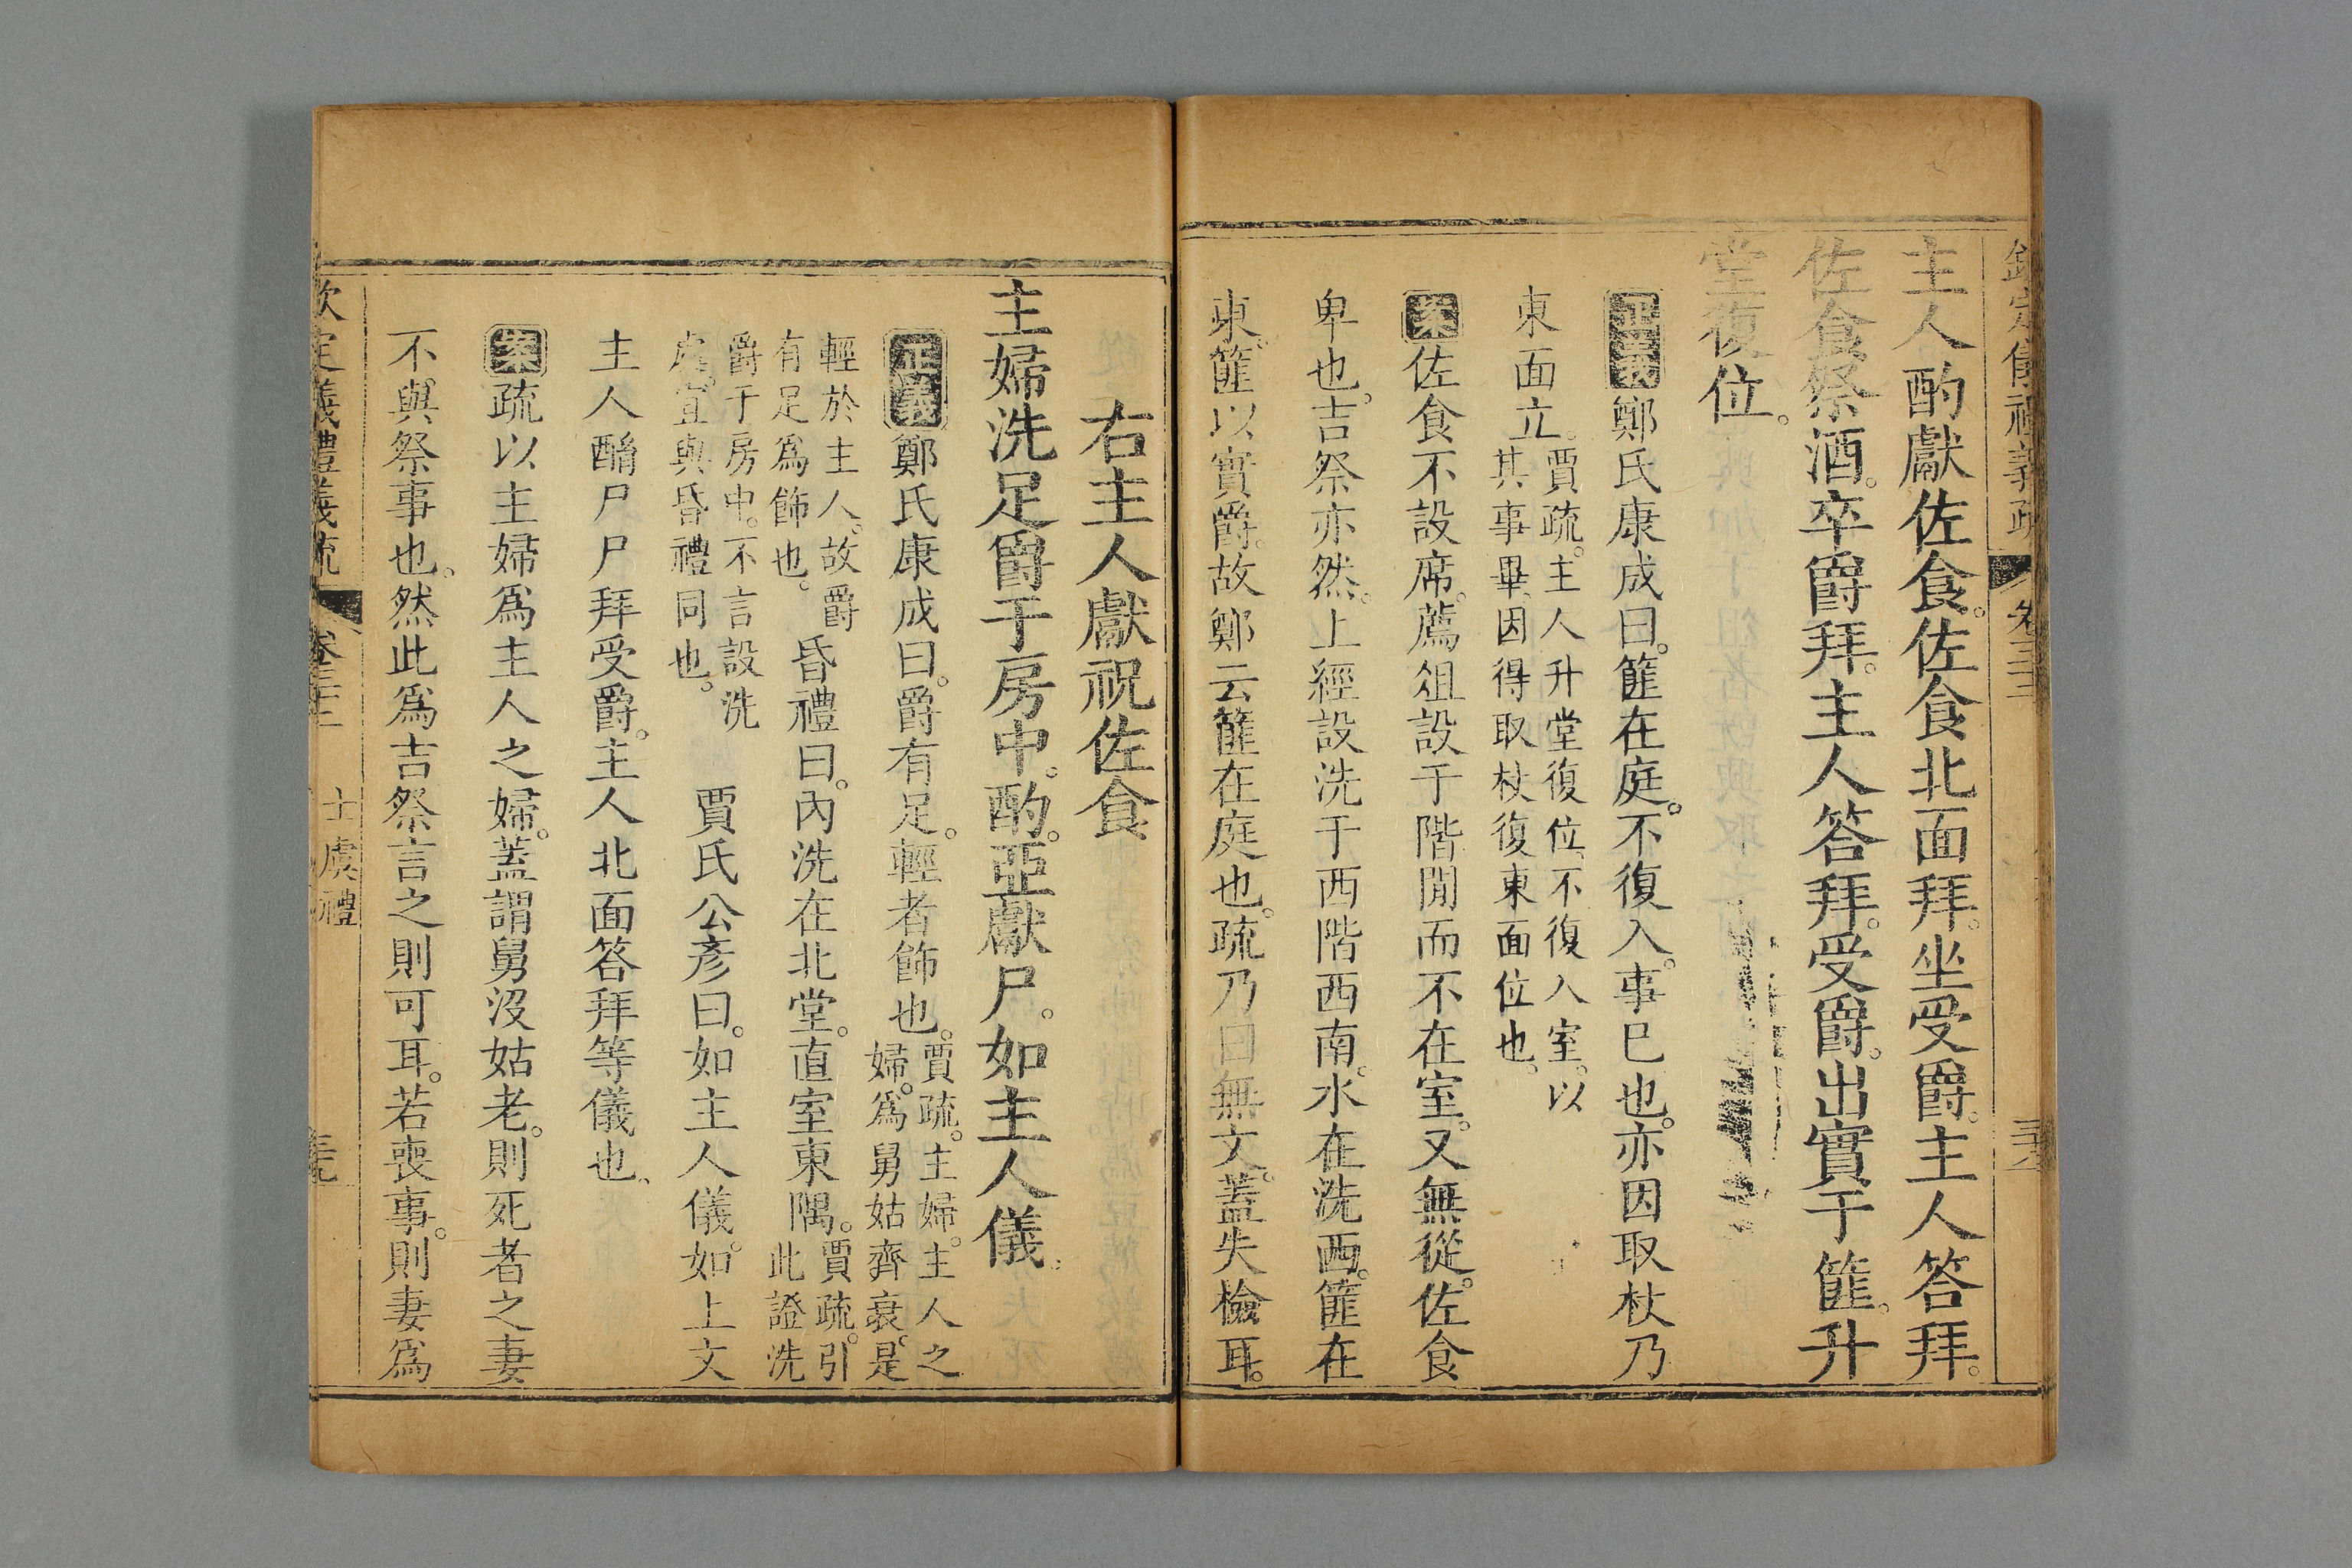 欽定儀禮義疏 卷三十三
主人酌獻佐食。佐食北面拜。坐受爵。主人答拜。
佐食祭酒。卒爵拜。主人答拜。受爵。出實于篚。升
堂復位。
正義鄭氏康成曰。篚在庭。不復入。事已也。亦因取杖乃
東面立。賈疏。主人升堂復位、不復入室。以
其事畢、因得取杖復東面位也。
案佐食不設席。薦俎設于階閒而不在室。又無從。佐食
卑也。吉祭亦然。上經設洗于西階西南。水在洗西。篚在
東。篚以實爵。故鄭云篚在庭也。疏乃曰無文。蓋失檢耳。
右主人獻祝佐食
主婦洗足爵于房中。酌。亞獻尸。如主人儀。
正義鄭氏康成曰。爵有足。輕者飾也。賈疏。主婦。主人之
婦。爲舅姑齊衰。是
輕於主人。故爵
有足爲飾也。昏禮曰。內洗在北堂。直室東隅。賈疏。引
此證洗
爵于房中。不言設洗
處。宜與昏禮同也。賈氏公彥曰。如主人儀。如上文
主人酳尸尸拜受爵。主人北面答拜等儀也、
案疏以主婦爲主人之婦。蓋謂舅沒姑老。則死者之妻
不與祭事也。然此爲吉祭言之則可耳。若喪事。則妻爲
欽定儀禮義疏 卷三十三 士虞禮